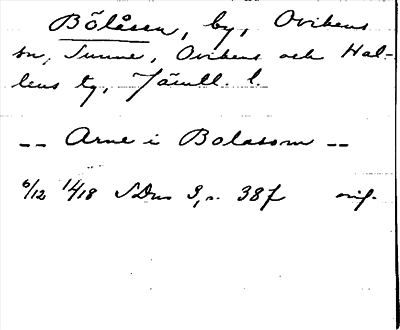 Bölåsen, by, Ovikens
sn, Sunne, Ovikens och Hal-
lens tg, Jämtl. l.
-- Arne i Bolasom --
6/12 1418 SDns 3, s. 387 orig.